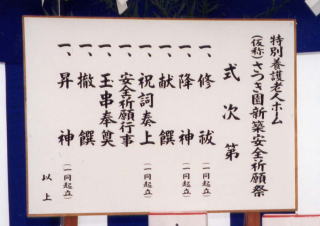 特別養護老人ホーム
(仮称)さつき園新築安全祈願祭
式次第
一、修祓
一、降神(一同起立)
一、献饌
一、祝詞奏上(一同起立)
一、安全祈願行事
一、玉串奉奠
一、撤饌
一、昇神(一同起立)
以上